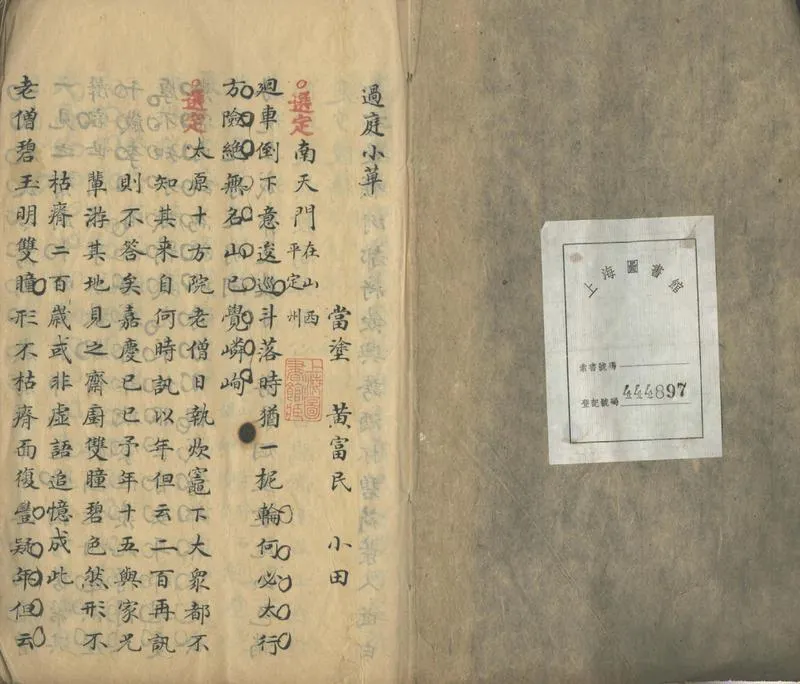 上海圖書館
索書號碼
登記號碼 444897
過庭小藁
當塗 黃富民 小田
上海圖書館藏
選定 南天門 在山西平定州
廻車倒下意逡巡斗落時猶一抳輪何必太行
方險絶無名山已覺嶙峋
選定 太原十方院老僧日執炊竈下大衆都不
知其来自何時訊以年但云二百再訊
則不答矣嘉慶己巳予年十五與家兄
輩游其地見之齋廚雙瞳碧色然形不
枯瘠二百歲或非虛語追憶成此
老僧碧玉明雙瞳形不枯瘠而復豐疑年但云